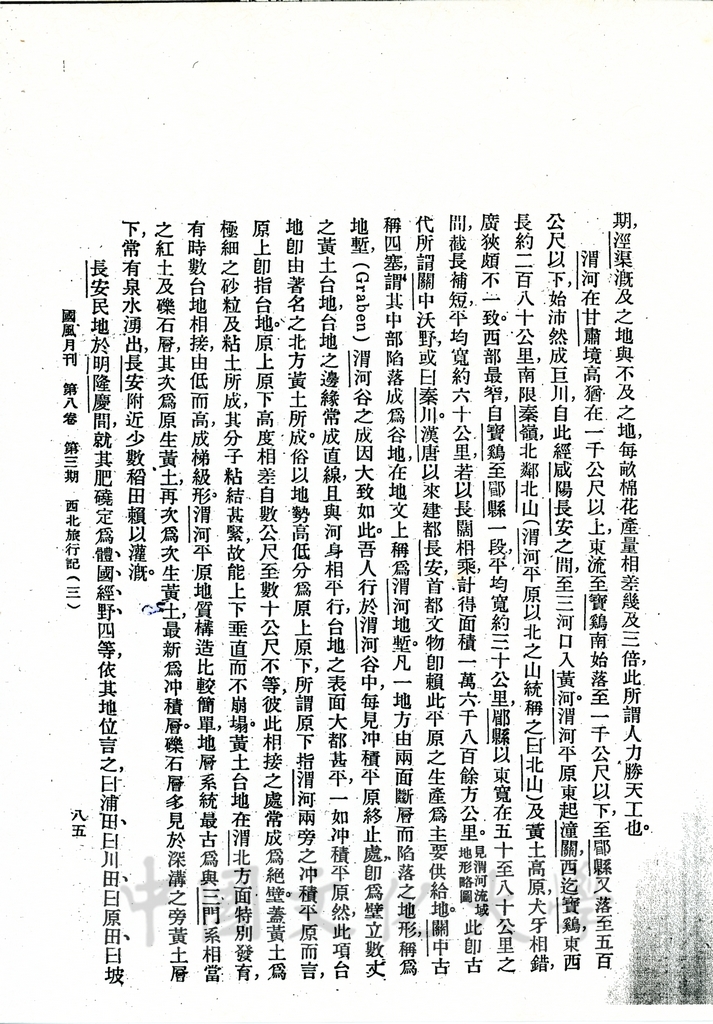 期,涇渠漑及之地與不及之地,每畝棉花產量相差幾及三倍,此所謂人力勝天工也。
渭河在甘肅境高猶在一千公尺以上,東流至寶鷄南始落至一千公尺以下,至郿縣又落至五百
公尺以下,始沛然成巨川,自此經咸陽長安之間,至三河口入黃河。渭河平原東起潼關,西迄寶鷄,東西
長約二百八十公里,南限秦嶺,北鄰北山(渭河平原以北之山統稱之曰北山)及黃土高原,犬牙相錯,
廣狹頗不一致。西部最窄,自寶鷄至郿縣一段,平均寬約三十公里,郿縣以東寬在五十至八十公里之
間,截長補短,平均寬約六十公里,若以長闊相乘,計得面積一萬六千八百餘方公里。見渭河流域地形略圖此卽古
代所謂關中沃野,或曰秦川。漢唐以來建都長安,首都文物卽賴此平原之生產爲主要供給地。關中古
稱四塞,謂其中部陷落成爲谷地,在地文上稱爲渭河地塹。凡一地方由兩面斷層而陷落之地形,稱爲
地塹(Graben)渭河谷之成因大致如此。吾人行於渭河谷中,每見冲積平原終止處,卽爲壁立數丈
之黃土台地,台地之邊緣常成直線,且與河身相平行,台地之表面大都甚平,一如冲積平原,然此項台
地卽由著名之北方黃土所成。俗以地勢高低分爲原上原下,所謂原下指渭河兩旁之冲積平原而言,
原上卽指台地。原上原下高度相差自數公尺至數十公尺不等,彼此相接之處常成爲絕壁,蓋黃土爲
極細之砂粒及粘土所成,其分子粘結甚緊,故能上下垂直而不崩塌。黃土台地在渭北方面特別發育,
有時數台地相接,由低而高,成梯級形。渭河平原地質構造比較簡單,地層系統最古爲與三門系相當
之紅土及礫石層,其次爲原生黃土,再次爲次生黃土,最新爲冲積層。礫石層多見於深溝之旁,黃土層
下,常有泉水湧出,長安附近少數稻田賴以灌漑。
長安民地於明隆慶間,就其肥磽定爲體、國、經、野、四等,依其地位言之,曰浦田、曰川田、曰原田、曰坡
國風月刊 第八卷 第三期 西北旅行記(三)
八五
中國文化大學